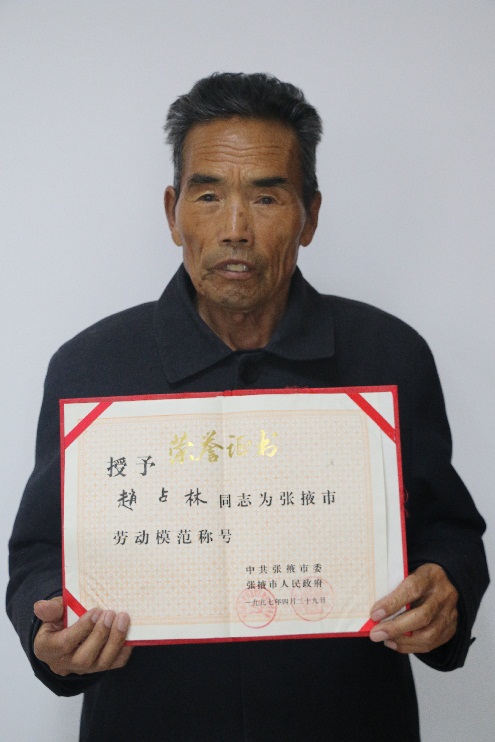 荣誉证书
授予
赵占林同志为张掖市
劳动模范称号
中共张掖市委
张掖市人民政府
一九八七年四月二十九日